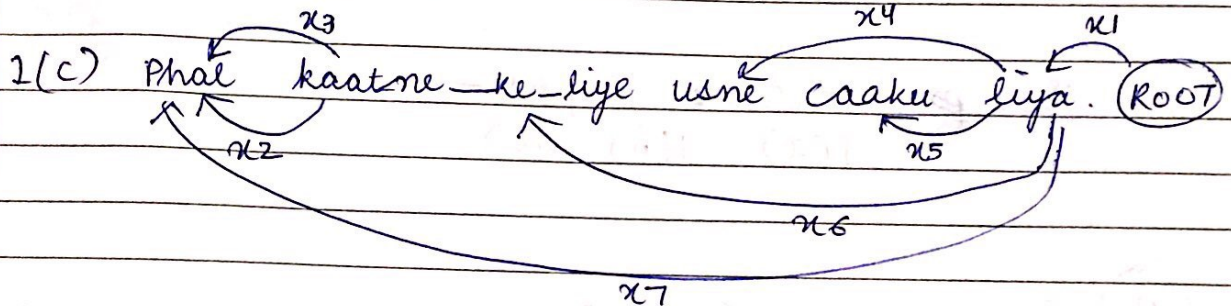 x3 x4 x1
1(c) Phal kaatne_ke_liye usne caaku liya. ROOT
x2 x5
x6
x7